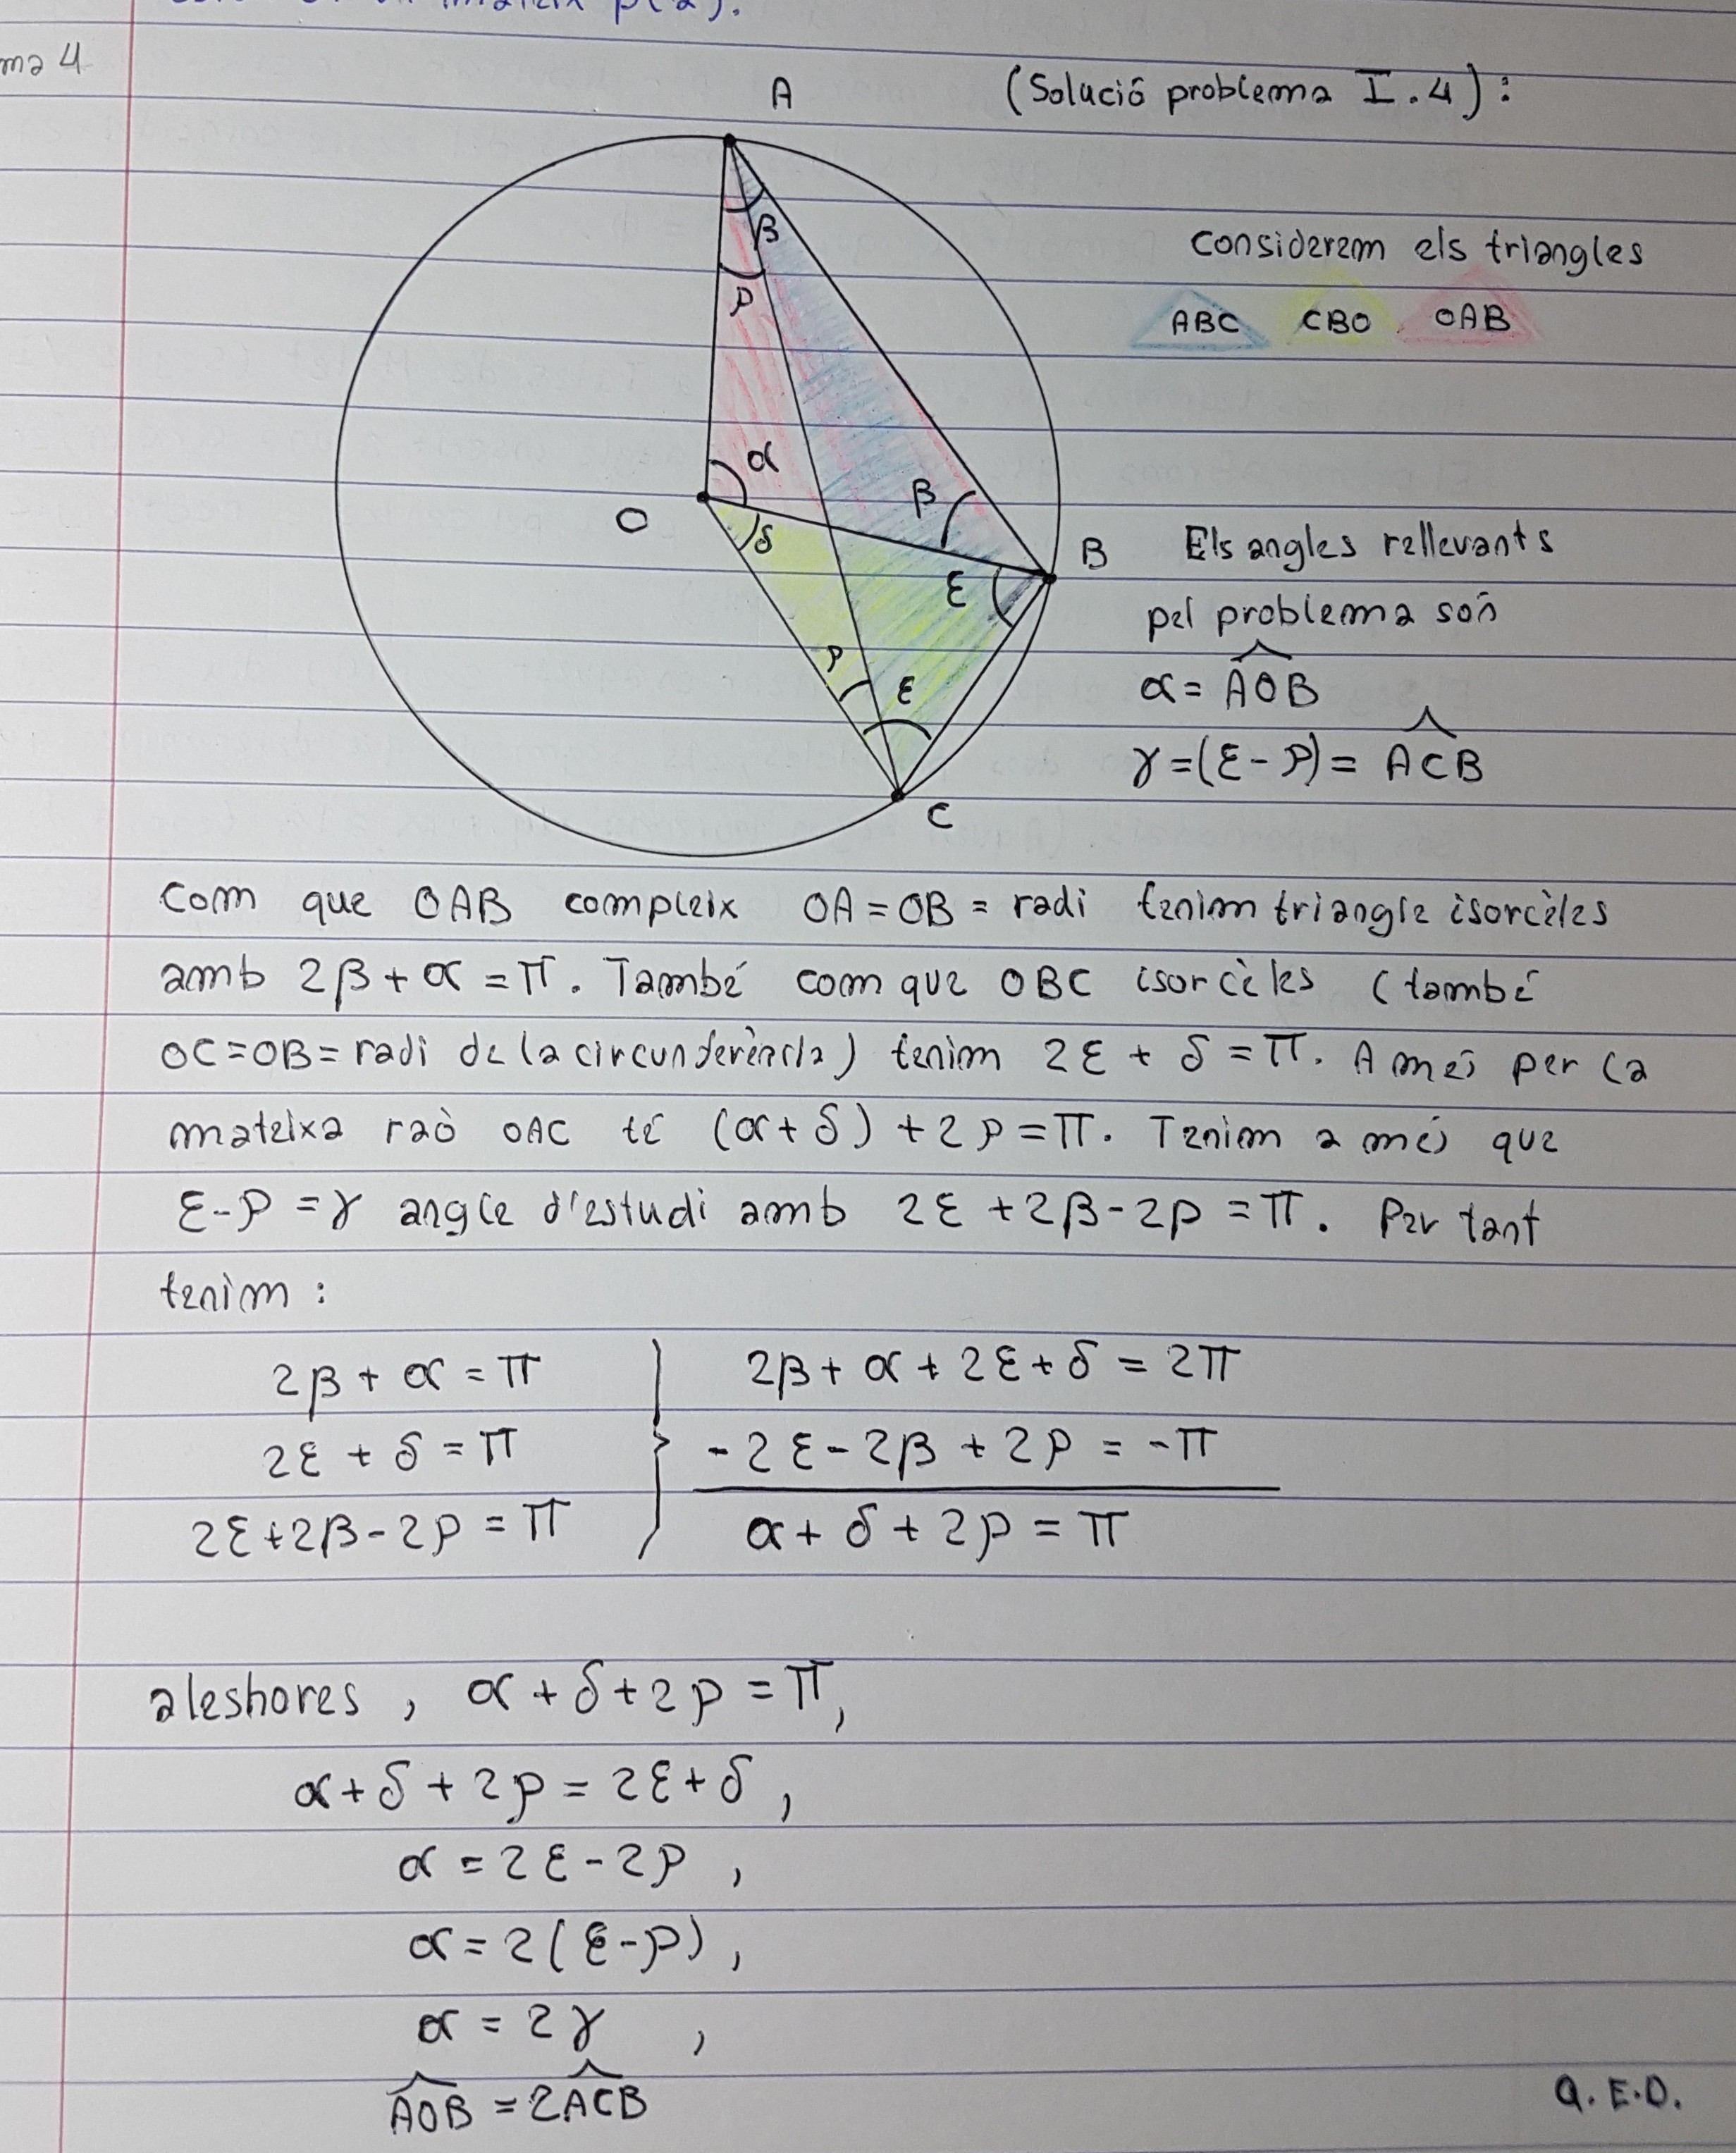 ma 4
(Solució problema I.4):
A
β
ρ
Considerem els triangles
ABC CBO OAB
α
β
O
δ
B
Els angles rellevants
ε
pel problema són
ρ
ε
α = AOB
γ = (ε - ρ) = ACB
C
Com que OAB compleix OA = OB = radi tenim triangle isorcèles
amb 2β + α = π. També com que OBC isorcèles (també
OC = OB = radi de la circunferència) tenim 2ε + δ = π. A més per la
mateixa raò OAC té (α + δ) + 2ρ = π. Tenim a més que
ε - ρ = γ angle d'estudi amb 2ε + 2β - 2ρ = π. Per tant
tenim :
2β + α = π
2β + α + 2ε + δ = 2π
2ε + δ = π
-2ε - 2β + 2ρ = -π
2ε + 2β - 2ρ = π
α + δ + 2ρ = π
aleshores , α + δ + 2ρ = π,
α + δ + 2ρ = 2ε + δ ,
α = 2ε - 2ρ ,
α = 2(ε - ρ) ,
α = 2γ ,
AOB = 2ACB
Q.E.D.